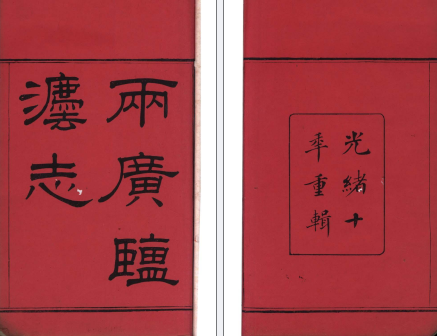 兩廣鹽
灋志
光緒十
年重輯